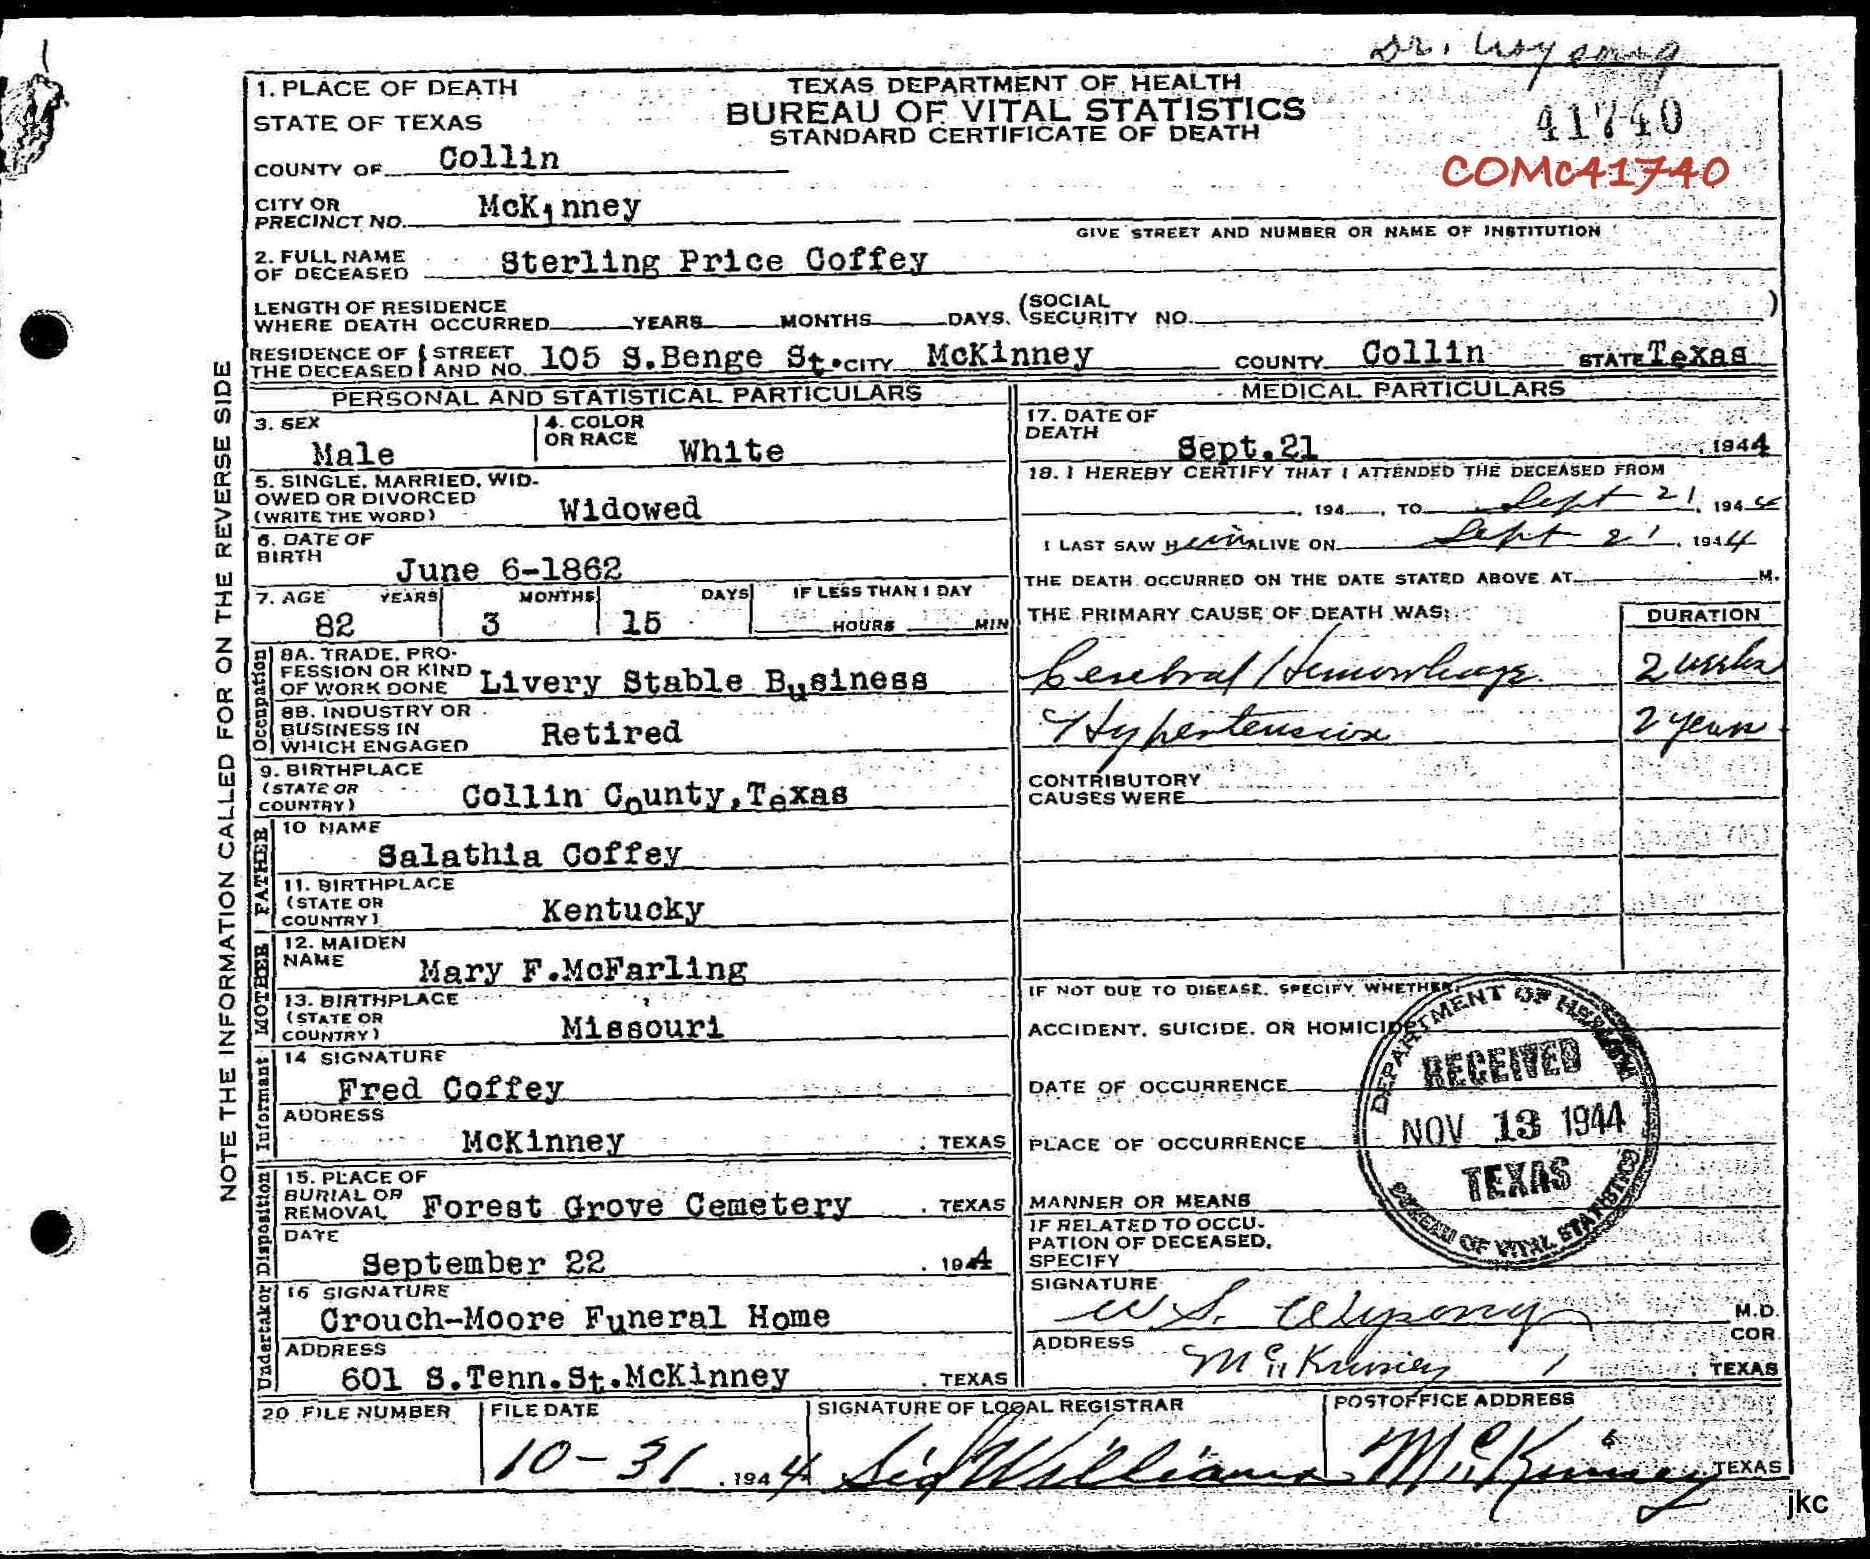 Dr. Wysong
1. PLACE OF DEATH
STATE OF TEXAS
TEXAS DEPARTMENT OF HEALTH
BUREAU OF VITAL STATISTICS
STANDARD CERTIFICATE OF DEATH
41740
COMc41740
COUNTY OF Collin
CITY OR PRECINCT NO. McKinney
GIVE STREET AND NUMBER OR NAME OF INSTITUTION
2. FULL NAME OF DECEASED Sterling Price Coffey
LENGTH OF RESIDENCE WHERE DEATH OCCURRED YEARS MONTHS DAYS. (SOCIAL SECURITY NO. )
RESIDENCE OF THE DECEASED { STREET AND NO. 105 S.Benge St. CITY McKinney COUNTY Collin STATE Texas
NOTE THE INFORMATION CALLED FOR ON THE REVERSE SIDE
PERSONAL AND STATISTICAL PARTICULARS
3. SEX Male
4. COLOR OR RACE White
5. SINGLE, MARRIED, WIDOWED OR DIVORCED (WRITE THE WORD) Widowed
6. DATE OF BIRTH June 6-1862
7. AGE YEARS 82 MONTHS 3 DAYS 15 IF LESS THAN 1 DAY HOURS MIN
Occupation
8A. TRADE, PROFESSION OR KIND OF WORK DONE Livery Stable Business
8B. INDUSTRY OR BUSINESS IN WHICH ENGAGED Retired
9. BIRTHPLACE (STATE OR COUNTRY) Collin County,Texas
FATHER
10 NAME Salathia Coffey
11. BIRTHPLACE (STATE OR COUNTRY) Kentucky
MOTHER
12. MAIDEN NAME Mary F.McFarling
13. BIRTHPLACE (STATE OR COUNTRY) Missouri
Informant
14 SIGNATURE Fred Coffey
ADDRESS McKinney , TEXAS
Disposition
15. PLACE OF BURIAL OR REMOVAL Forest Grove Cemetery , TEXAS
DATE September 22 , 1944
Undertaker
16 SIGNATURE Crouch-Moore Funeral Home
ADDRESS 601 S.Tenn.St.McKinney , TEXAS
MEDICAL PARTICULARS
17. DATE OF DEATH Sept.21 , 1944
18. I HEREBY CERTIFY THAT I ATTENDED THE DECEASED FROM
, 194 , TO Sept 21, 1944
I LAST SAW Him ALIVE ON Sept 21, 1944
THE DEATH OCCURRED ON THE DATE STATED ABOVE AT M.
THE PRIMARY CAUSE OF DEATH WAS: DURATION
Cerebral Hemorrhage 2 weeks
Hypertension 2 years
CONTRIBUTORY CAUSES WERE
IF NOT DUE TO DISEASE, SPECIFY WHETHER
ACCIDENT, SUICIDE, OR HOMICIDE
DATE OF OCCURRENCE
PLACE OF OCCURRENCE
MANNER OR MEANS
IF RELATED TO OCCUPATION OF DECEASED, SPECIFY
DEPARTMENT OF HEALTH
RECEIVED
NOV 13 1944
TEXAS
BUREAU OF VITAL STATISTICS
SIGNATURE W.S. Wysong M.D.
COR
ADDRESS McKinney , TEXAS
20 FILE NUMBER
FILE DATE 10-31 , 1944
SIGNATURE OF LOCAL REGISTRAR Sid Williams
POSTOFFICE ADDRESS McKinney TEXAS
jkc